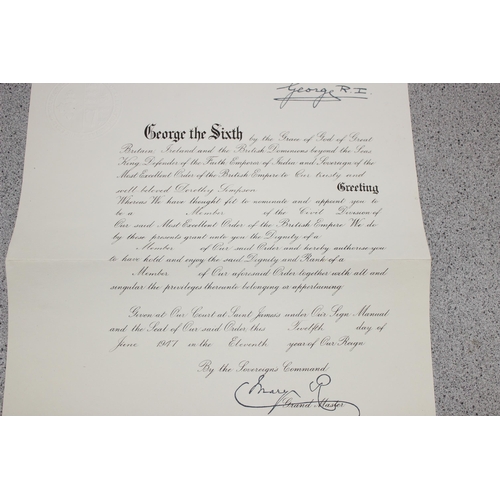 George R.I.
George the Sixth by the Grace of God of Great
Britain, Ireland and the British Dominions beyond the Seas
King, Defender of the Faith Emperor of India and Sovereign of the
Most Excellent Order of the British Empire to Our trusty and
well beloved Dorothy Simpson Greeting
Whereas We have thought fit to nominate and appoint you to
be a Member of the Civil Division of
Our said Most Excellent Order of the British Empire We do
by these presents grant unto you the Dignity of a
Member of Our said Order and hereby authorise you
to have hold and enjoy the said Dignity and Rank of a
Member of Our aforesaid Order together with all and
singular the privileges thereunto belonging or appertaining
Given at Our Court at Saint James's under Our Sign Manual
and the Seal of Our said Order this Twelfth day of
June 1947 in the Eleventh year of Our Reign
By the Sovereign's Command
Mary R
Grand Master